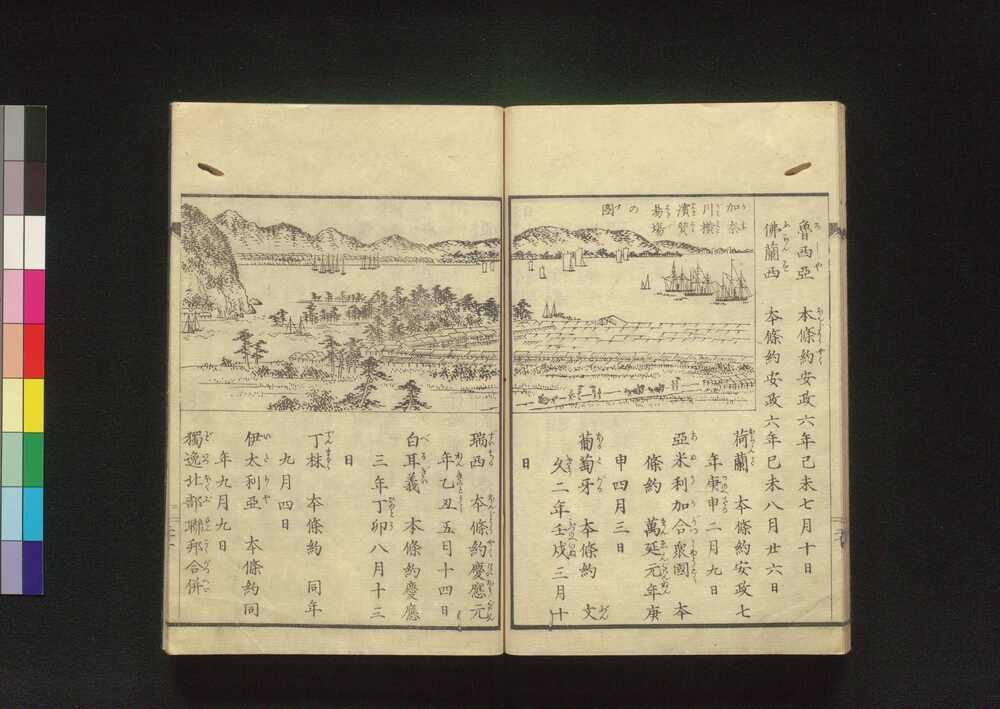 魯西亞　本條約安政六年己未七月十日
佛蘭西　本條約安政六年己未八月廿六日
加奈
川横
濱貿
易場
の
圖
荷蘭　本條約安政七
年庚申二月九日
亞米利加合衆國　本
條約　萬延元年庚
申四月三日
葡萄牙　本條約　文
久二年壬戌三月十
日
瑞西　本條約慶應元
年乙丑五月十四日
白耳義　本條約慶應
三年丁卯八月十三
日
丁抹　本條約　同年
九月四日
伊太利亞　本條約同
年九月九日
獨逸北部聯邦合併